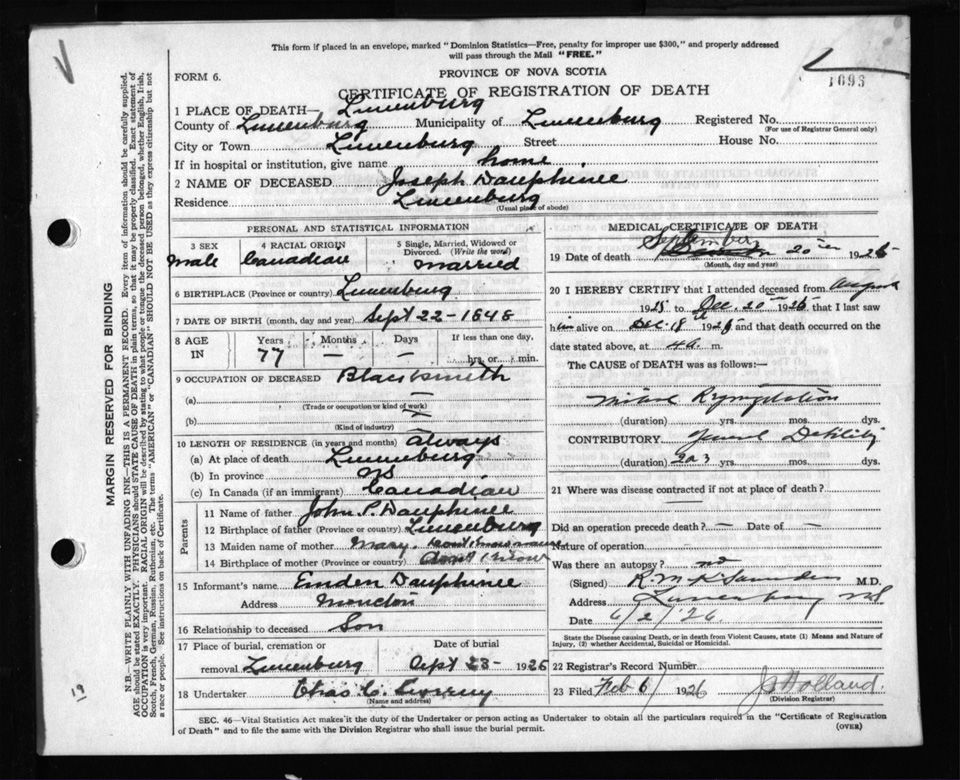 This form if placed in an envelope, marked "Dominion Statistics—Free, penalty for improper use $300," and properly addressed
will pass through the Mail "FREE."
FORM 6.
PROVINCE OF NOVA SCOTIA
1693
CERTIFICATE OF REGISTRATION OF DEATH
1 PLACE OF DEATH— Lunenburg
County of Lunenburg Municipality of Lunenburg Registered No.
(For use of Registrar General only)
City or Town Lunenburg Street House No.
If in hospital or institution, give name home
2 NAME OF DECEASED Joseph Dauphinee
Residence Lunenburg
(Usual place of abode)
PERSONAL AND STATISTICAL INFORMATION
3 SEX Male
4 RACIAL ORIGIN Canadian
5 Single, Married, Widowed or Divorced. (Write the word) Married
6 BIRTHPLACE (Province or country) Lunenburg
7 DATE OF BIRTH (month, day and year) Sept 22-1848
8 AGE IN Years 77 Months — Days — If less than one day, hrs. or min.
9 OCCUPATION OF DECEASED Blacksmith
(a) —
(Trade or occupation or kind of work)
(b) —
(Kind of industry)
10 LENGTH OF RESIDENCE (in years and months) always
(a) At place of death Lunenburg
(b) In province NS
(c) In Canada (if an immigrant) Canadian
Parents
11 Name of father John P. Dauphinee
12 Birthplace of father (Province or country) Lunenburg
13 Maiden name of mother Mary. dont know name
14 Birthplace of mother (Province or country) dont know
15 Informant's name Dauphinee
Address Moncton
16 Relationship to deceased Son
17 Place of burial, cremation or removal Lunenburg
Date of burial Sept 23- 1925
18 Undertaker Chas C.
(Name and address)
MEDICAL CERTIFICATE OF DEATH
19 Date of death September 20th 1925
(Month, day and year)
20 I HEREBY CERTIFY that I attended deceased from August
1925 to Dec. 20th 1925 that I last saw
him alive on Dec. 18 192 and that death occurred on the
date stated above, at 4a m.
The CAUSE OF DEATH was as follows:—
Mitral Regurgitation
(duration) yrs. mos. dys.
CONTRIBUTORY General Debility
(duration) 2 or 3 yrs. mos. dys.
21 Where was disease contracted if not at place of death?
Did an operation precede death? — Date of —
Nature of operation —
Was there an autopsy? no
(Signed) Saunders M.D.
Address Lunenburg NS
Date 6/2/'26
State the Disease causing Death, or in death from Violent Causes, state (1) Means and Nature of
Injury, (2) whether Accidental, Suicidal or Homicidal.
22 Registrar's Record Number
23 Filed Feb 6/ 1926 Holland.
(Division Registrar)
SEC. 46—Vital Statistics Act makes it the duty of the Undertaker or person acting as Undertaker to obtain all the particulars required in the "Certificate of Registration
of Death" and to file the same with the Division Registrar who shall issue the burial permit. (OVER)
MARGIN RESERVED FOR BINDING
N.B.—WRITE PLAINLY WITH UNFADING INK—THIS IS A PERMANENT RECORD. Every item of information should be carefully supplied.
AGE should be stated EXACTLY. PHYSICIANS should STATE CAUSE OF DEATH in plain terms, so that it may be properly classified. Exact statement of
OCCUPATION is very important. RACIAL ORIGIN will be described by stating to what people or tongue the deceased person belonged, whether English, Irish,
Scotch, French, German, Russian, Ruthenian, etc. The terms "AMERICAN" or "CANADIAN" SHOULD NOT BE USED as they express citizenship but not
a race or people. See instructions on back of Certificate.
19